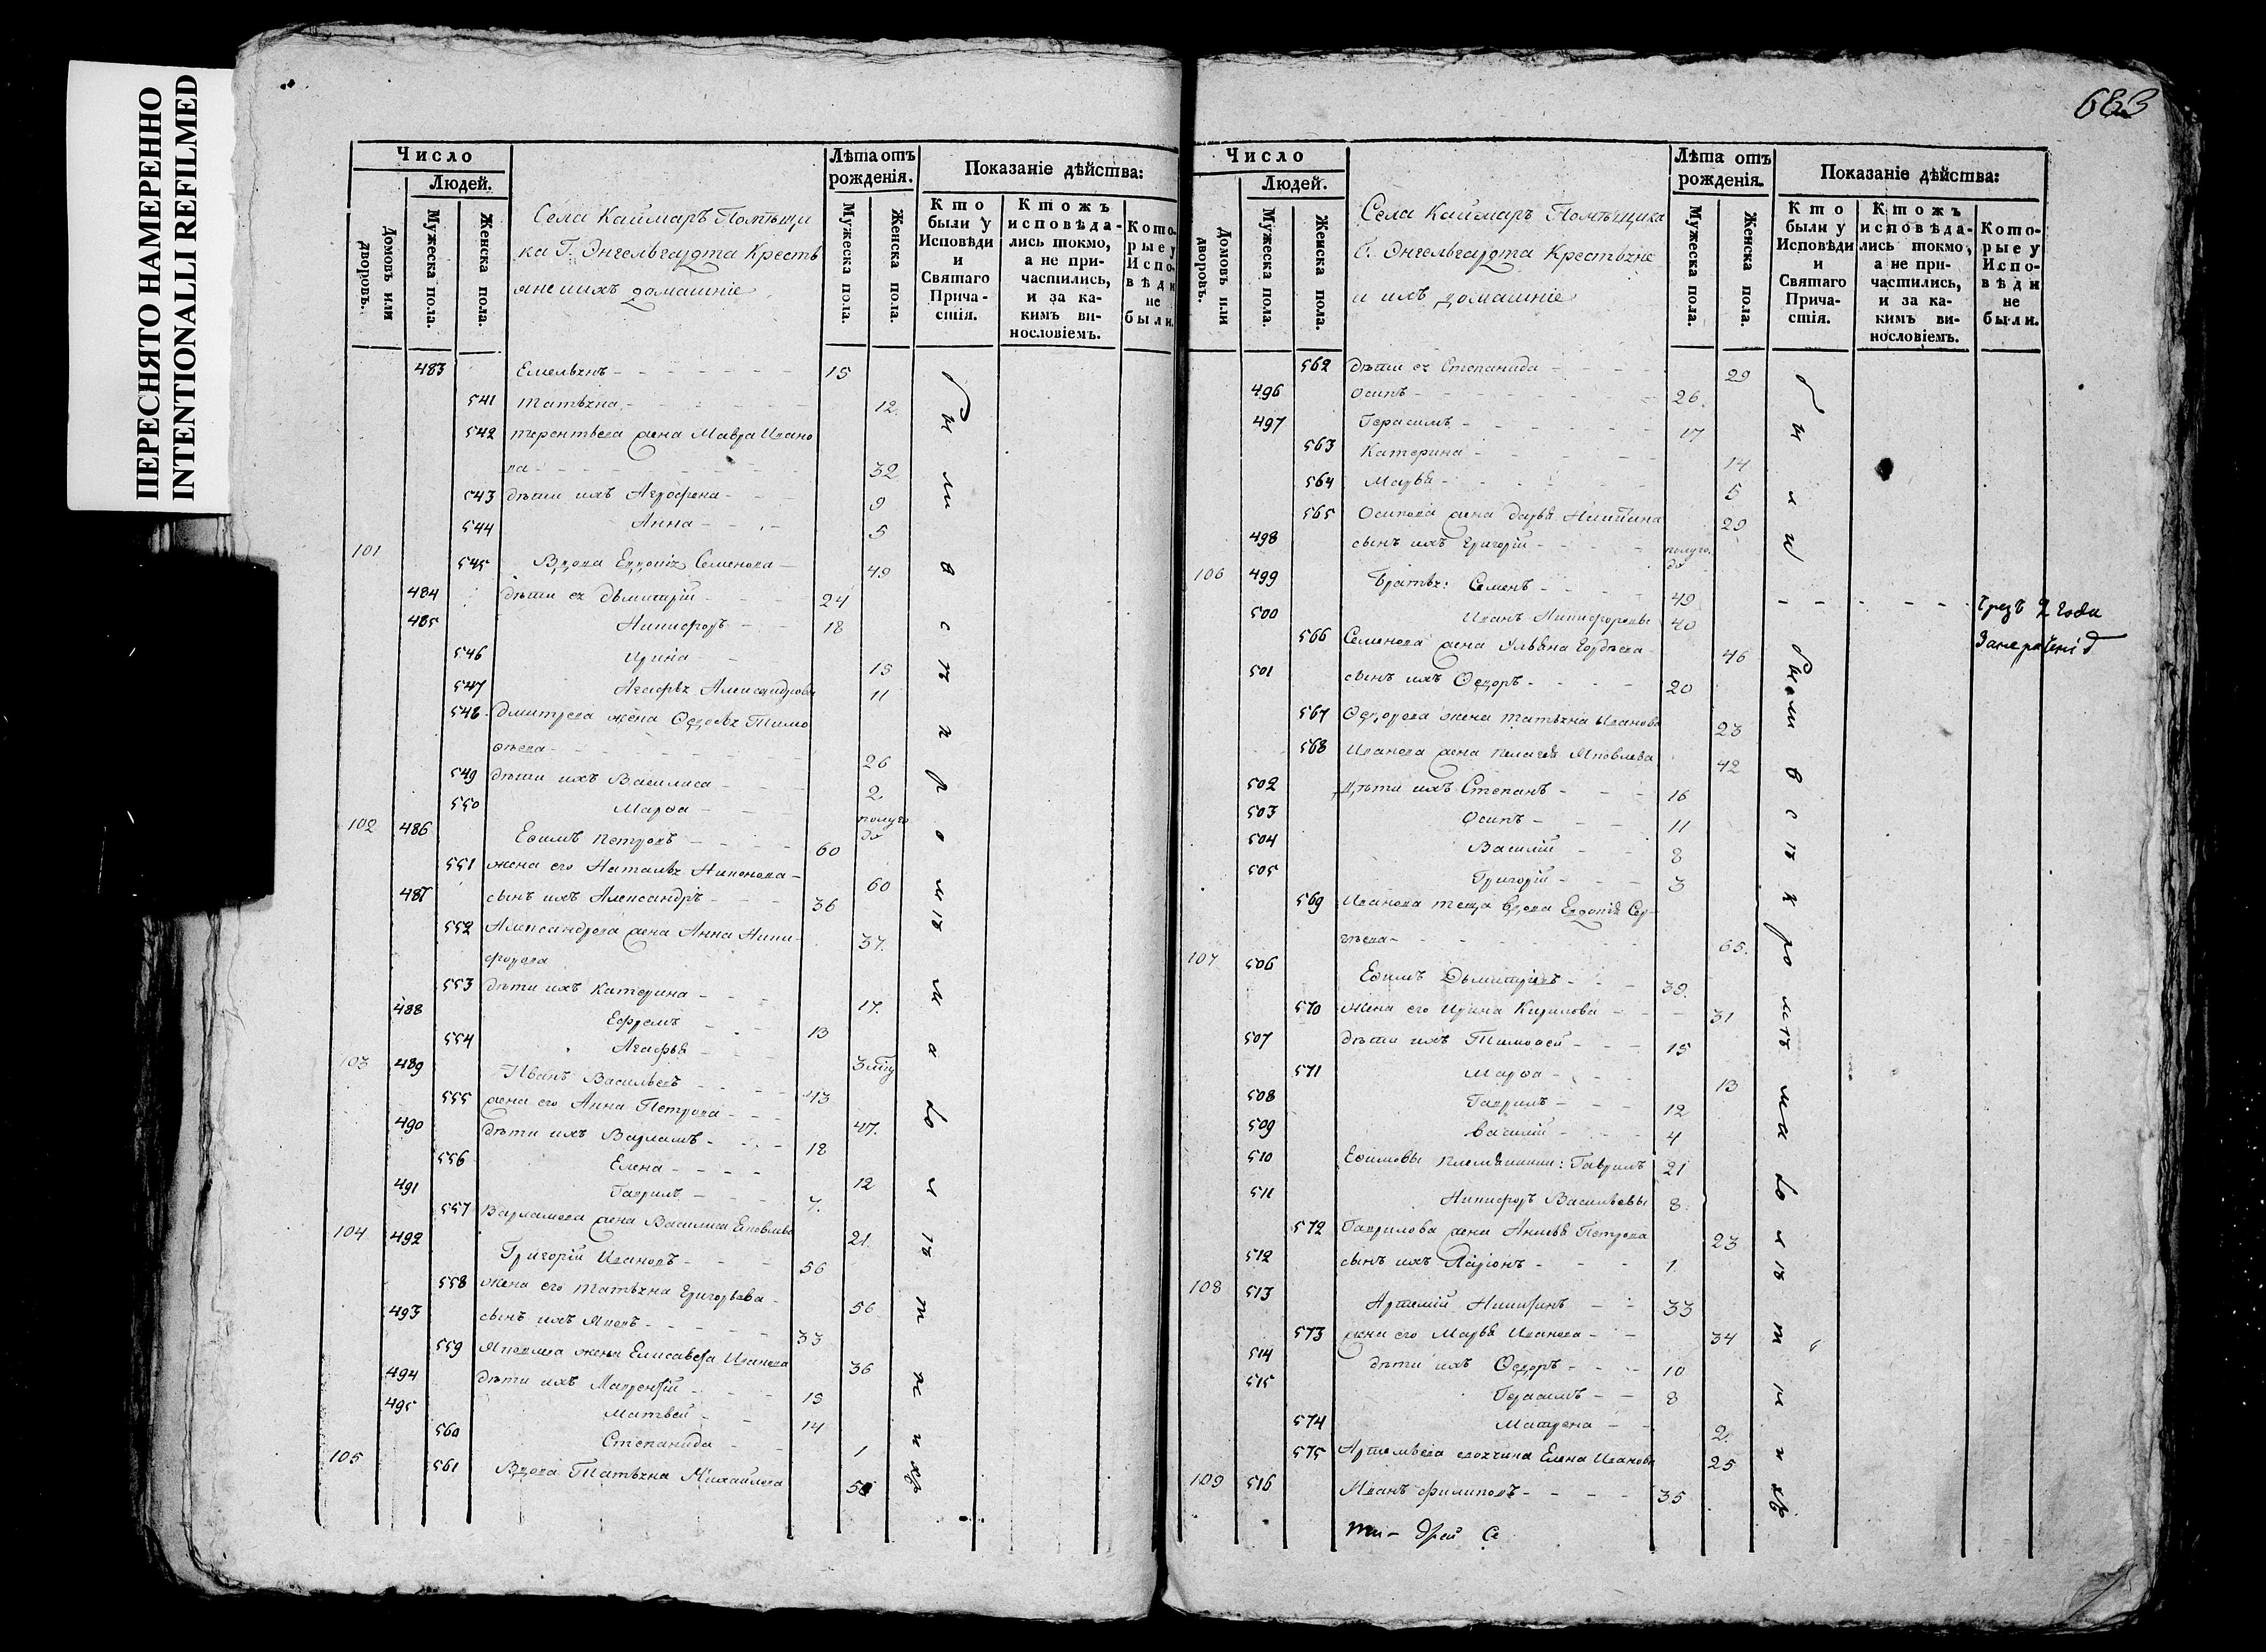 ПЕРЕСНЯТО НАМЕРЕННО
INTENTIONALLI REFILMED
Число
Людей.
Домовъ или дворовъ.
Мужеска пола.
Женска пола.
Села Каймаръ Помѣщи
ка Г. Энгельгардта Кресть
яне и ихъ домашніе
Лѣта отъ рожденія.
Мужеска пола.
Женска пола.
Показаніе дѣйства:
Кто были у Исповѣди и Святаго Прича-стія.
Ктожъ исповѣда-лись токмо, а не при-частились, и за ка-кимъ ви-нословіемъ.
Кото-рые у Испо-вѣди не были.
483 Емельянъ 15
541 Татьяна 12
542 Терентьева жена Мавра Ивано
ва 32
543 дѣти ихъ Агрофена 9
544 Анна 5
101 545 Вдова Евдокія Семенова 49
484 дѣти ея Дьмитрій 24
485 Никифоръ 18
546 Ирина 15
547 Агафья Александровы 11
548 Дмитрева жена Федосья Тимо
ѳеева 26
549 дѣти ихъ Василиса 2
550 Марѳа полуго
да
102 486 Еѳимъ Петровъ 60
551 жена его Наталья Никонова 60
487 сынъ ихъ Александръ 36
552 Александрова жена Анна Ники-
форова 37
553 дѣти ихъ Катерина 17
488 Ефремъ 13
554 Агафья 3 мѣц
103 489 Иванъ Васильевъ 43
555 жена его Анна Петрова 47
490 дѣти ихъ Варламъ 18
556 Елена 12
491 Гаврилъ 7
557 Варламова жена Василиса Яковлева 21
104 492 Григорій Ивановъ 56
558 жена его Татьяна Григорьева 56
493 сынъ ихъ Яковъ 33
559 Яковлева жена Елисавета Иванова 36
494 дѣти ихъ Лаврентій 15
495 Матвей 14
560 Степанида 1
105 561 Вдова Татьяна Михайлова
были въ с. покромѣ малолѣтних
683
Число
Людей.
Домовъ или дворовъ.
Мужеска пола.
Женска пола.
Села Каймаръ Помѣщика
Г. Энгельгардта Крестьяне
и ихъ домашніе
Лѣта отъ рожденія.
Мужеска пола.
Женска пола.
Показаніе дѣйства:
Кто были у Исповѣди и Святаго Прича-стія.
Ктожъ исповѣда-лись токмо, а не при-частились, и за ка-кимъ ви-нословіемъ.
Кото-рые у Испо-вѣди не были.
562 дѣти ея Степанида 29
496 Осипъ 26
497 Герасимъ 17
563 Катерина 14
564 Марья 5
565 Осипова жена Дарья Никитина 29
498 сынъ ихъ Григорій полуго
да
106 499 Братья: Семенъ 49
чрезъ 2 года
500 Иванъ Никифоровы 40
566 Семенова жена Ульяна Гордѣева 46
501 сынъ ихъ Ѳедоръ 20
567 Ѳедорова жена Татьяна Иванова 23
568 Иванова жена Пелагея Яковлева 42
502 Дѣти ихъ Степанъ 16
503 Осипъ 11
504 Василій 8
505 Григорій 3
569 Иванова теща вдова Евдокія Сер-
гѣева 65
107 506 Еѳимъ Дьмитріевъ 39
570 жена его Ирина Кирилова 31
507 дѣти ихъ Тимоѳей 15
571 Марѳа 13
508 Гаврилъ 12
509 Василій 4
510 Еѳимовы племянники: Гаврилъ 21
511 Никифоръ Васильевы 8
572 Гаврилова жена Анисья Петрова 23
512 сынъ ихъ Ларіонъ 1
108 513 Артемій Никитинъ 33
573 жена его Марья Иванова 34
514 дѣти ихъ Ѳедоръ 10
515 Герасимъ 8
574 Матрена 2
575 Артемьева своячина Елена Иванова 25
109 516 Иванъ Филиповъ 35